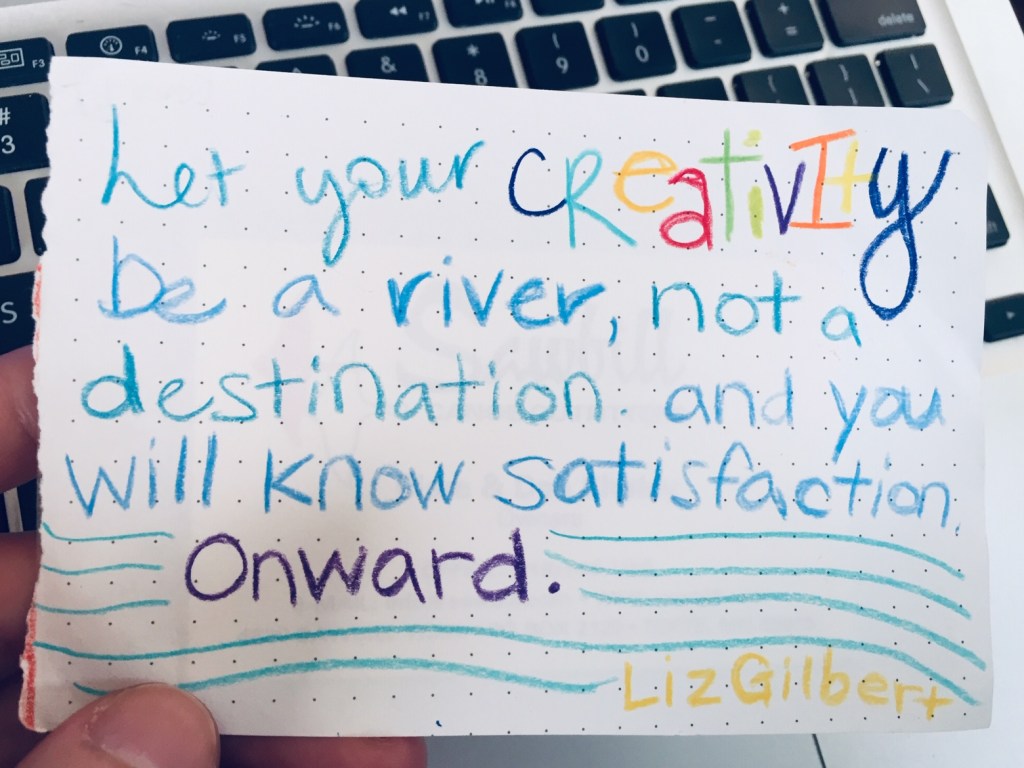 F3 F4 F5 F6 F7
# 3 & * 8 ( 9 ) 0 _ - + = delete
S
Let your CReativITy
be a river, not a
destination. and you
will know satisfaction.
Onward.
Liz Gilbert